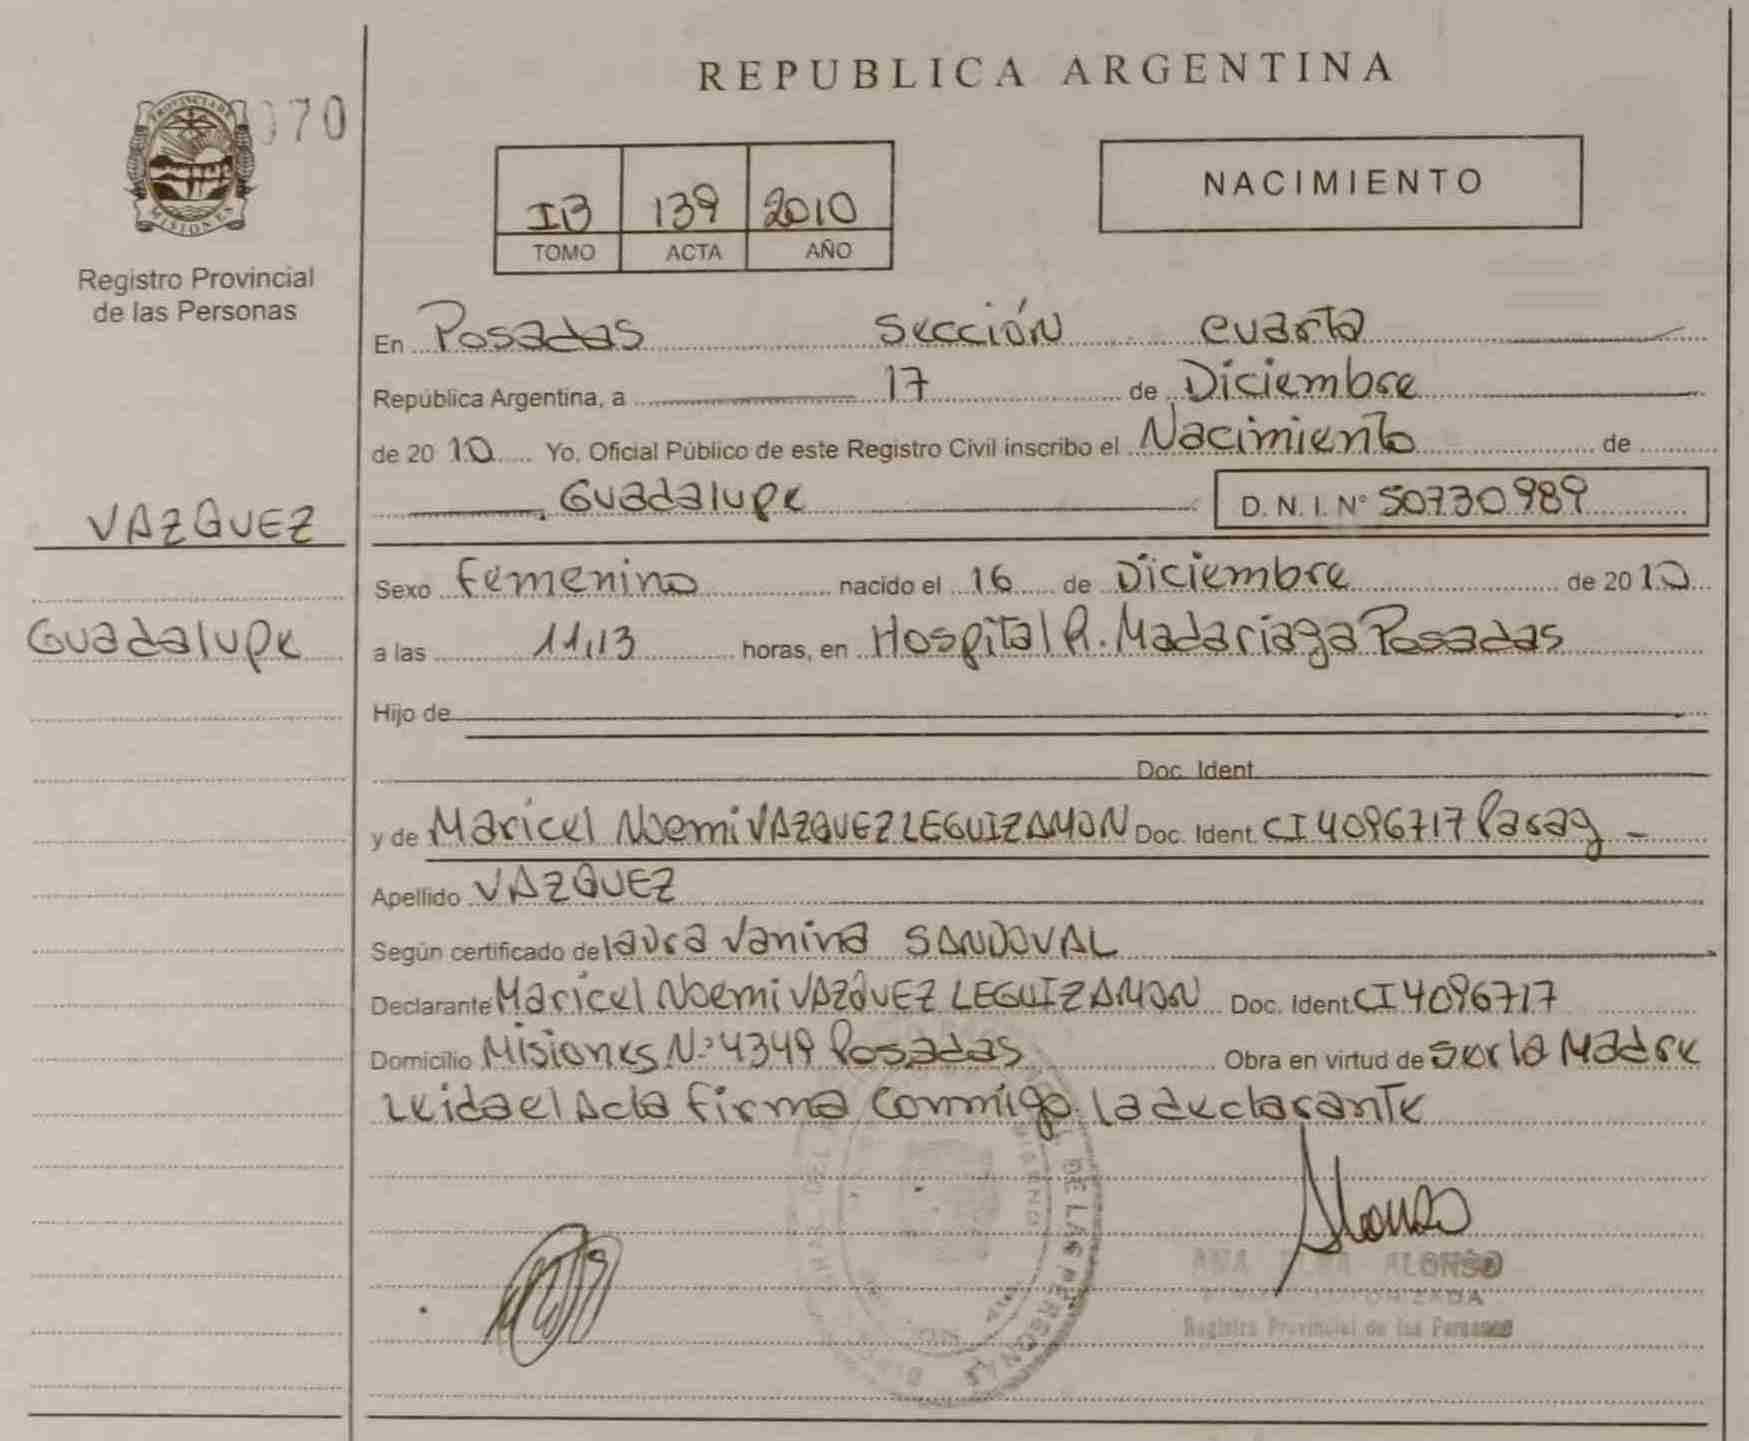 REPUBLICA ARGENTINA
PROVINCIA DE
MISIONES
070
Registro Provincial
de las Personas
IB 139 2010
TOMO ACTA AÑO
NACIMIENTO
En Posadas Sección cuarta
República Argentina, a 17 de Diciembre
de 2010 Yo, Oficial Público de este Registro Civil inscribo el Nacimiento de
Guadalupe D.N.I. Nº 50730989
VAZQUEZ
Guadalupe
Sexo Femenino nacido el 16 de Diciembre de 2010
a las 11,13 horas, en Hospital R. Madariaga Posadas
Hijo de
Doc. Ident.
y de Maricel Noemi VAZQUEZ LEGUIZAMON Doc. Ident. CI 4096717 Parag
Apellido VAZQUEZ
Según certificado de laura Vanina SANDOVAL
Declarante Maricel Noemi VAZQUEZ LEGUIZAMON Doc. Ident. CI 4096717
Domicilio Misiones Nº 4349 Posadas Obra en virtud de ser la Madre
Leida el Acta firma conmigo la declarante
DE LAS PERSONAS
Alonso
ANA ALONSO
Registro Provincial de las Personas